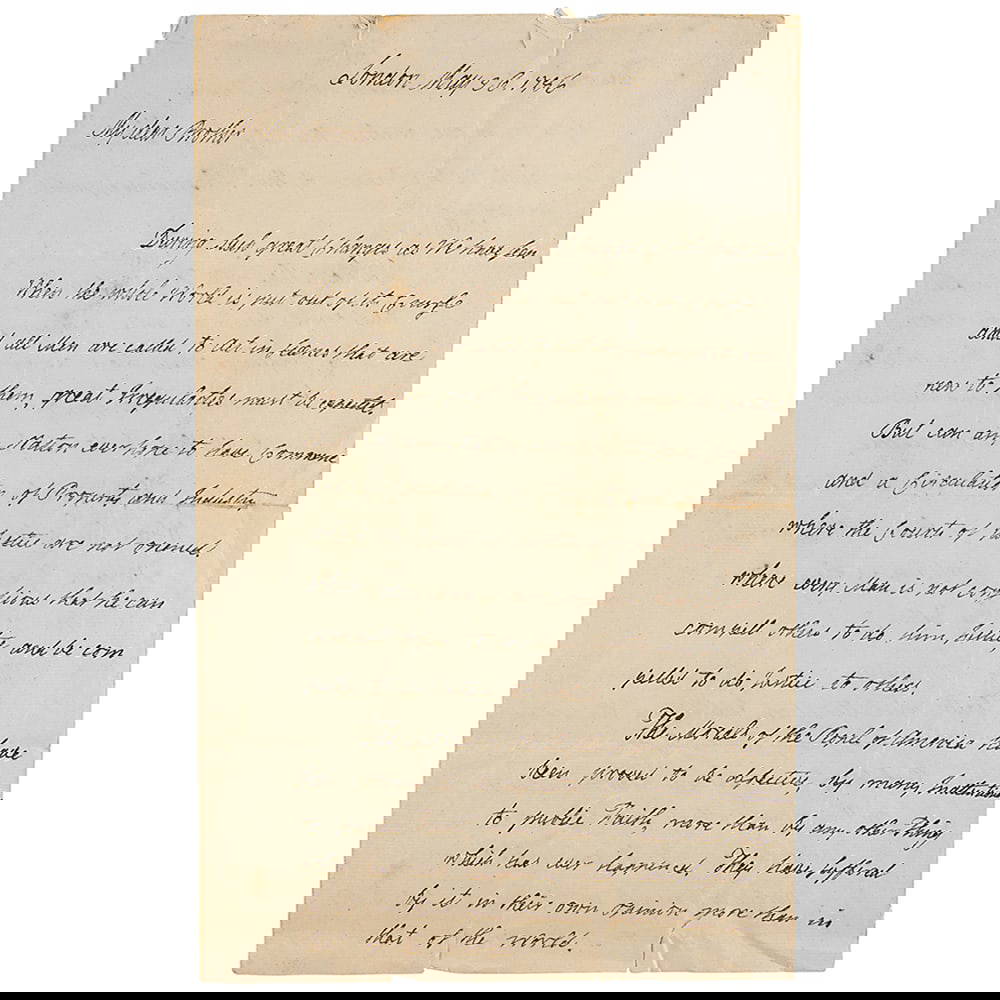 London May 1786
My dear Brother
During such great Changes as We have seen
When the whole World is put out of it
and all Men are called to Act in scenes that are
new to them, great Irregularities must be expected.
But can any Nation ever hope to have Commerce
and a Circulation of Property and Industry,
where the Sources of justice are not opened?
where every Man is not conscious that he can
compell others to do him Justice, and be com
pelled to do Justice to others.
The Morals of the People of America have
been proved to be defective, by many Inattentions
to public Faith, more than by any other Thing
which has ever happened. They have suffered
by it in their own opinion more than in
that of the world.